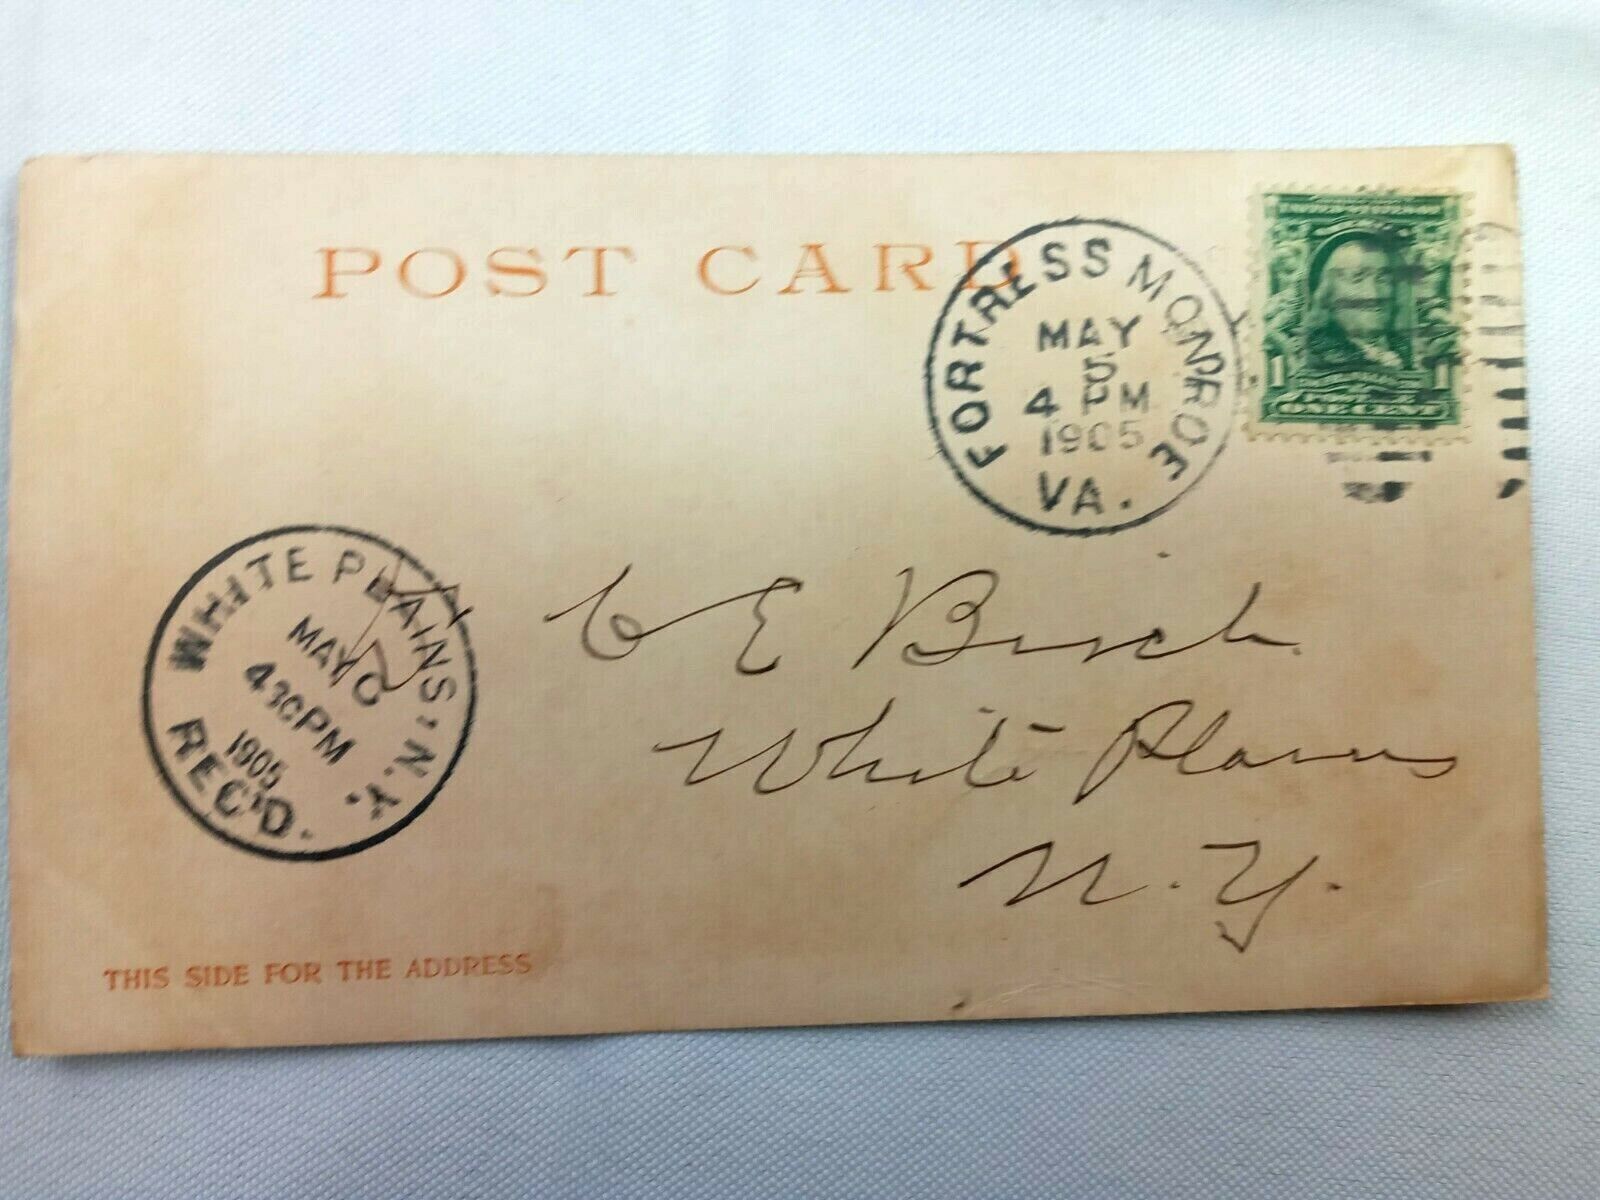 POST CARD
FORTRESS MONROE
MAY
5
4 PM
1905
VA.
1 1
ONE CENT
WHITE PLAINS, N.Y.
MAY
430PM
1905
REC'D.
C E Birch
White Plains
N. Y.
THIS SIDE FOR THE ADDRESS